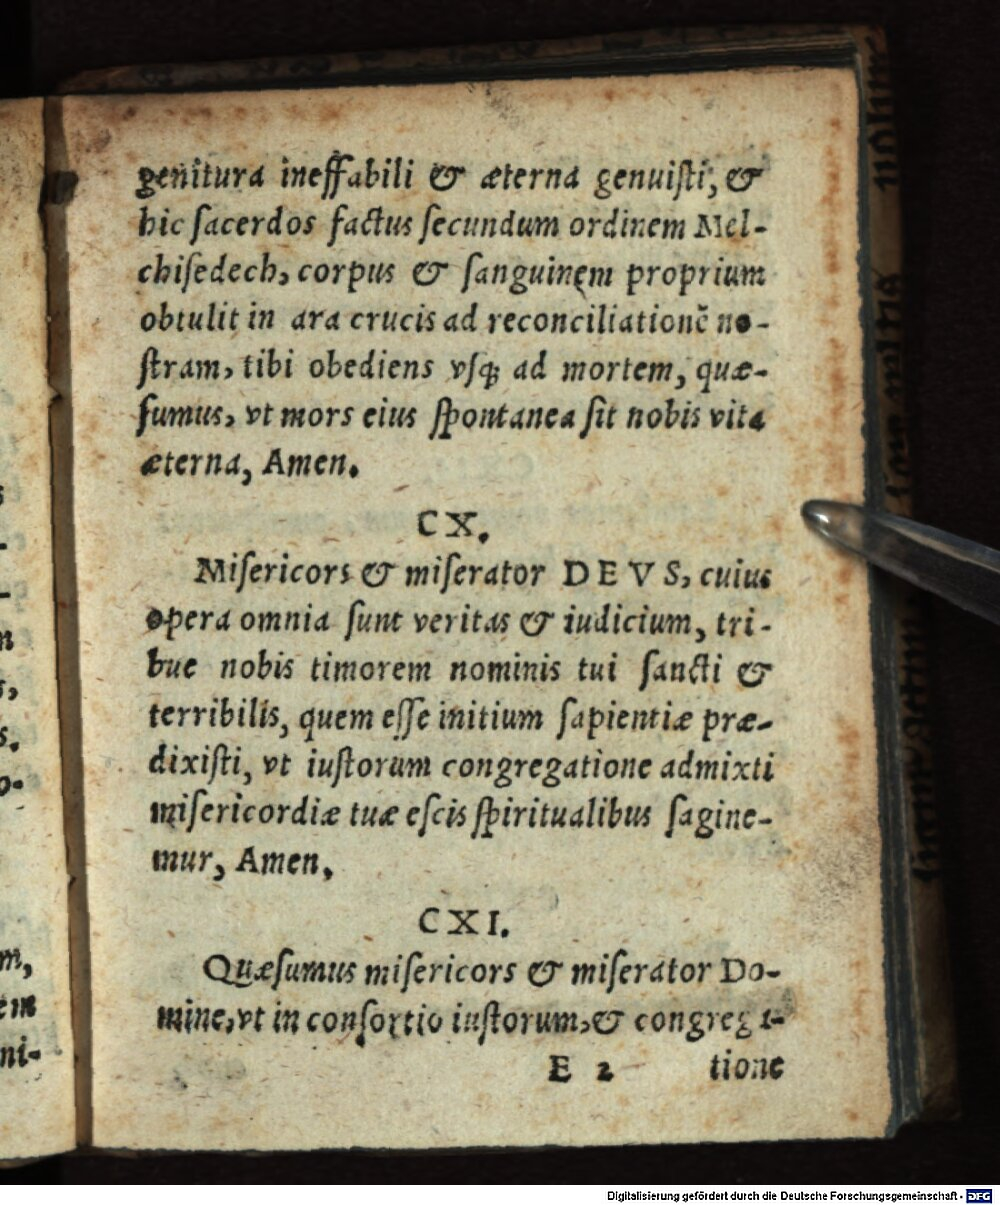 genitura ineffabili & æterna genuiſti, &
hic ſacerdos factus ſecundum ordinem Mel-
chiſedech, corpus & ſanguinem proprium
obtulit in ara crucis ad reconciliationẽ no-
ſtram, tibi obediens vſq; ad mortem, quæ-
ſumus, vt mors eius ſpontanea ſit nobis vita
æterna, Amen.
CX.
Miſericors & miſerator DEVS, cuius
opera omnia ſunt veritas & iudicium, tri-
bue nobis timorem nominis tui ſancti &
terribilis, quem eſſe initium ſapientiæ præ-
dixiſti, vt iuſtorum congregatione admixti
miſericordiæ tuæ eſcis ſpiritualibus ſagine-
mur, Amen.
CXI.
Quæſumus miſericors & miſerator Do-
mine, vt in conſortio iuſtorum, & congrega-
E 2 tione
Digitalisierung gefördert durch die Deutsche Forschungsgemeinschaft - DFG